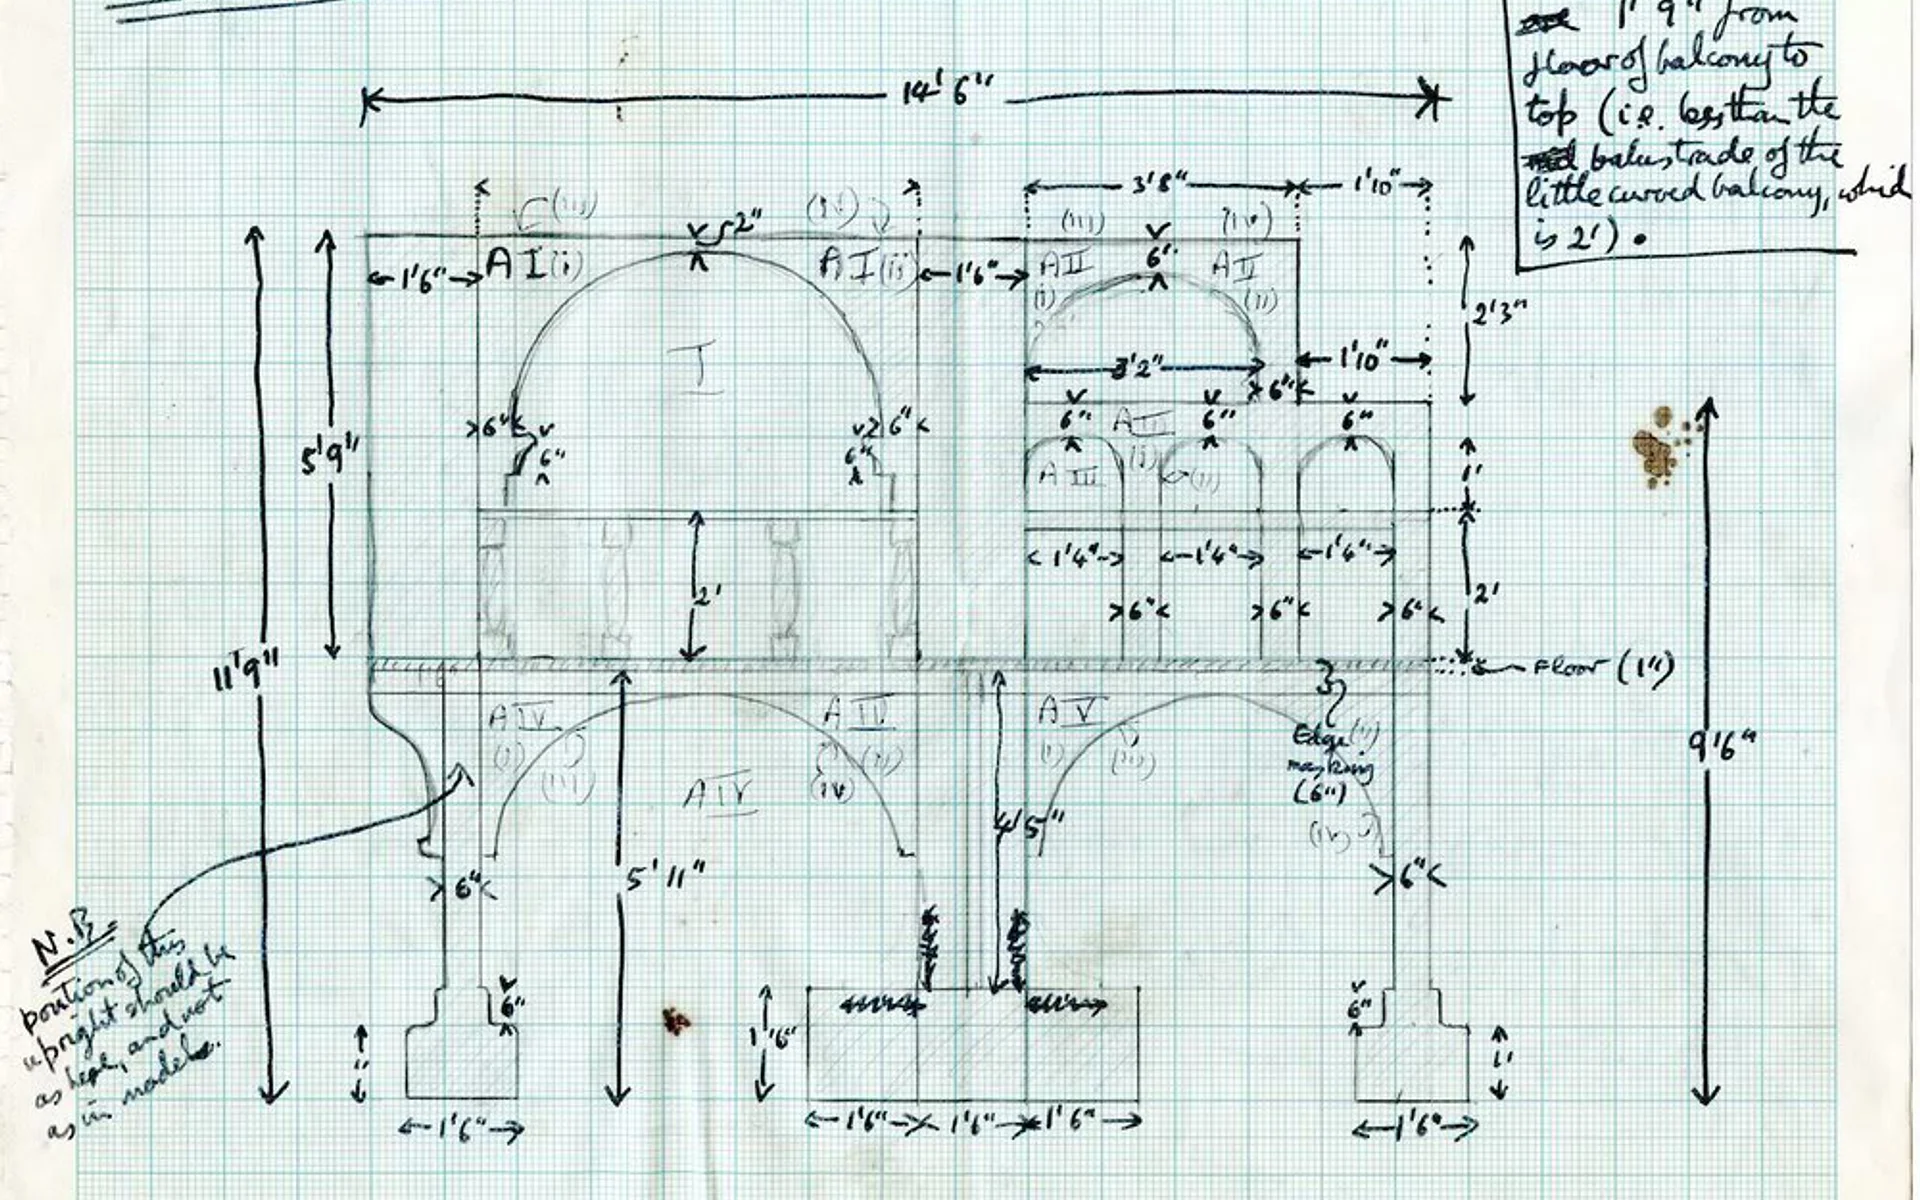 1'9" from
floor of balcony to
top (i.e. less than the
balustrade of the
little curved balcony, which
is 2').
14'6"
3'8" 1'10"
(iii) (iv) 2" (iii) (iv)
1'6" AI(i) AI(ii) 1'6" AII 6" AII
(i) (ii)
2'3"
I
3'2" 1'10"
6"
6" 6" 6" 6" 6"
AII
5'9" 6" 6" AIII (i) (ii) 1'
1'4" 1'4" 1'4"
2' 6" 6" 6" 2'
11'9" Floor (1")
AIV AIV AV
(i) (iii) (iv) (ii) (i) (iii)
Edge (ii)
masking
(6")
9'6"
AIV
4'5" (iv)
5'11" 6" 6"
N.B
position of this
upright should be
as here, and not
as in model.
6" 6"
1' 1'6" 1'
1'6" 1'6" 1'6" 1'6" 1'6"